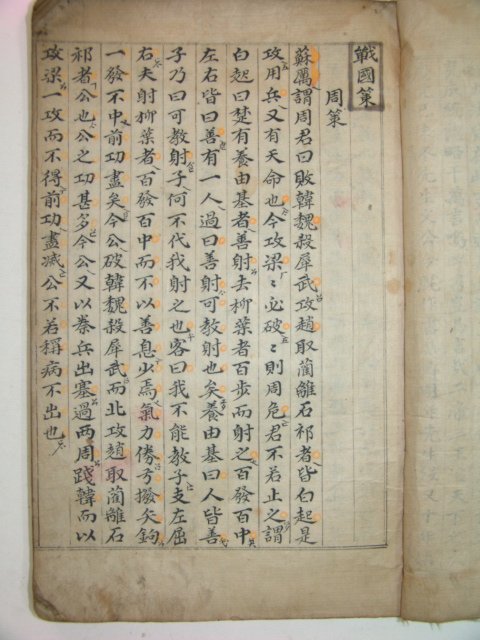 戰國策
周策
蘇厲謂周君曰敗韓魏殺犀武攻趙取藺離石祁者皆白起是
攻用兵又有天命也今攻梁〻必破〻則周危君不若止之謂
白起曰楚有養由基者善射去柳葉者百步而射之百發百中
左右皆曰善有一人過曰善射可教射也矣養由基曰人皆善
子乃曰可教射子何不代我射之也客曰我不能教子支左屈
右夫射柳葉者百發百中而不以善息少焉氣力倦弓撥矢鉤
一發不中前功盡矣今公破韓魏殺犀武而北攻趙取藺離石
祁者公也公之功甚多今公又以秦兵出塞過兩周踐韓而以
攻梁一攻而不得前功盡滅公不若稱病不出也